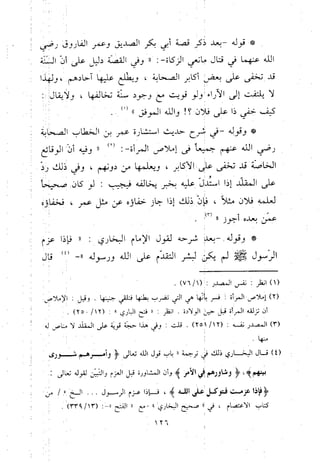 * قوله - بعد ذكر قصة أبي بكر الصديق وعمر الفاروق رضي
الله عنهما في قتال مانعي الزكاة -: « وفي القصة دليل على أن السنة
قد تخفى على بعض أكابر الصحابة ، ويطلع عليها آحادهم ، ولهذا
لا يلتفت إلى الآراء ولو قويت مع وجود سنة تخالفها ، ولا يقال :
كيف خفي ذا على فلان ؟! والله الموفق » (١) .
* قوله - في شرح حديث استشارة عمر بن الخطاب الصحابة
رضي الله عنهم جميعاً في إملاص المرأة -: « وفيه أن الوقائع
الخاصة قد تخفى على الأكابر ، ويعلمها من دونهم ، وفي ذلك رد
على المقلد إذا استدل عليه بخبر يخالفه فيجيب : لو كان صحيحاً
لعلمه فلان مثلاً ، فإن ذلك إذا جاز خفاؤه عن مثل عمر ، فخفاؤه
عمن بعده أجوز » (٣) .
* وقوله - بعد شرحه لقول الإمام البخاري : « فإذا عزم
الرسول ﷺ لم يكن لبشر التقدم على الله ورسوله » (٤) - قال
(١) انظر : نفس المصدر : (٧٦/١) .
(٢) إملاص المرأة : فسر بأنها هي التي تضرب بطنها فتلقي جنينها . وقيل : الإملاص :
أن تزلق المرأة قبل حين الولادة . انظر : « فتح الباري » : (٢٥٠/١٢) .
(٣) نفس المصدر : (٢٥١/١٢) . قلت : وفي هذا حث قوي على نبذ التقليد لا مناص له
منه .
(٤) قال البخاري في ذلك في ترجمة « باب قول الله تعالى ﴿ وأمرهم شورى
بينهم ﴾ ، ﴿ وشاورهم في الأمر ﴾ وأن المشاورة قبل العزم والتبين لقوله تعالى :
﴿ فإذا عزمت فتوكل على الله ﴾ ، فإذا عزم الرسول ... الخ » / من
كتاب الاعتصام ، في « صحيح البخاري » - مع « الفتح » -: (٣٣٩/١٣) .
١٢٦